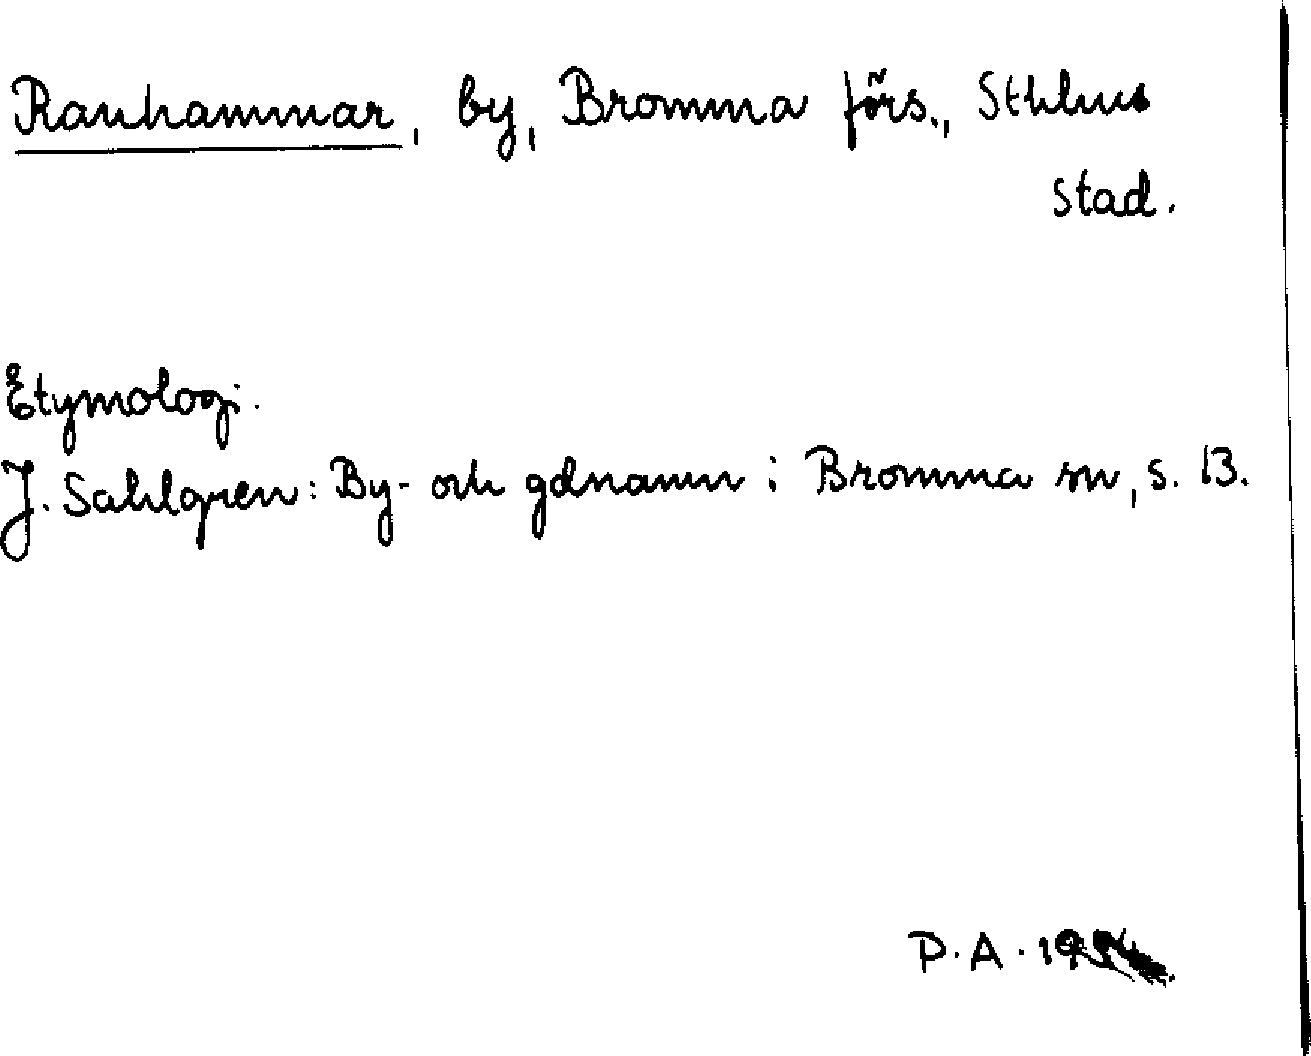 Ranhammar, by, Bromma förs., Sthlms
stad.
Etymologi.
J. Sahlgren: By- och gdnamn i Bromma sn, s. 13.
P.A.